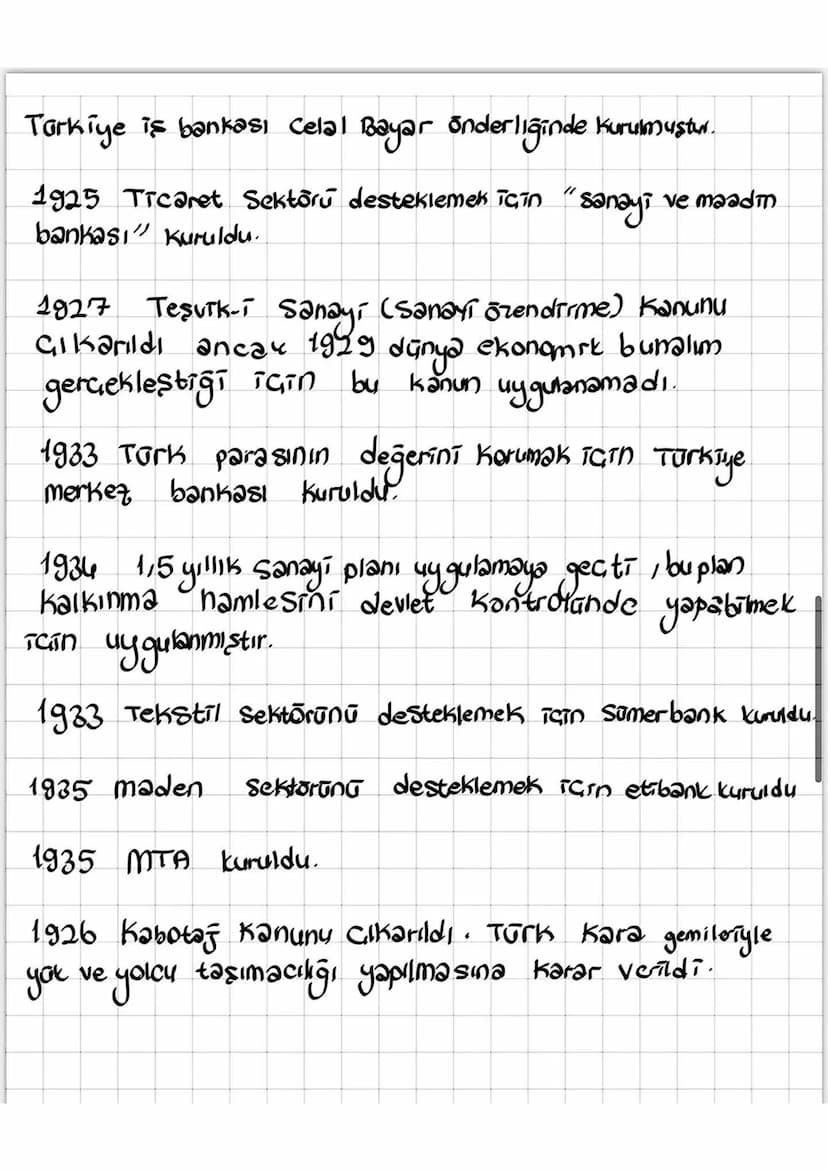 Türkiye iş bankası Celal Bayar önderliğinde kurulmuştur.
1925 Ticaret Sektörü desteklemek için "sanayi ve maadin
bankası" kuruldu.
1927 Teşvik-i Sanayi (Sanayi özendirme) Kanunu
Çıkarıldı ancak 1929 dünya ekonomik bunalım
gerçekleştiği için bu kanun uygulanamadı.
1933 Türk parasının değerini korumak için Türkiye
merkez bankası kuruldu.
1934 1,5 yıllık Sanayi planı uygulamaya geçti, bu plan
kalkınma hamlesini devlet kontrolünde yapabilmek
için uygulanmıştır.
1933 Tekstil Sektörünü desteklemek için Sümerbank kuruldu.
1935 maden Sektörünü desteklemek için etibank kuruldu
1935 MTA kuruldu.
1926 Kabotaj Kanunu Çıkarıldı. Türk Kara gemileriyle
yük ve yolcu taşımacılığı yapılmasına karar verildi.